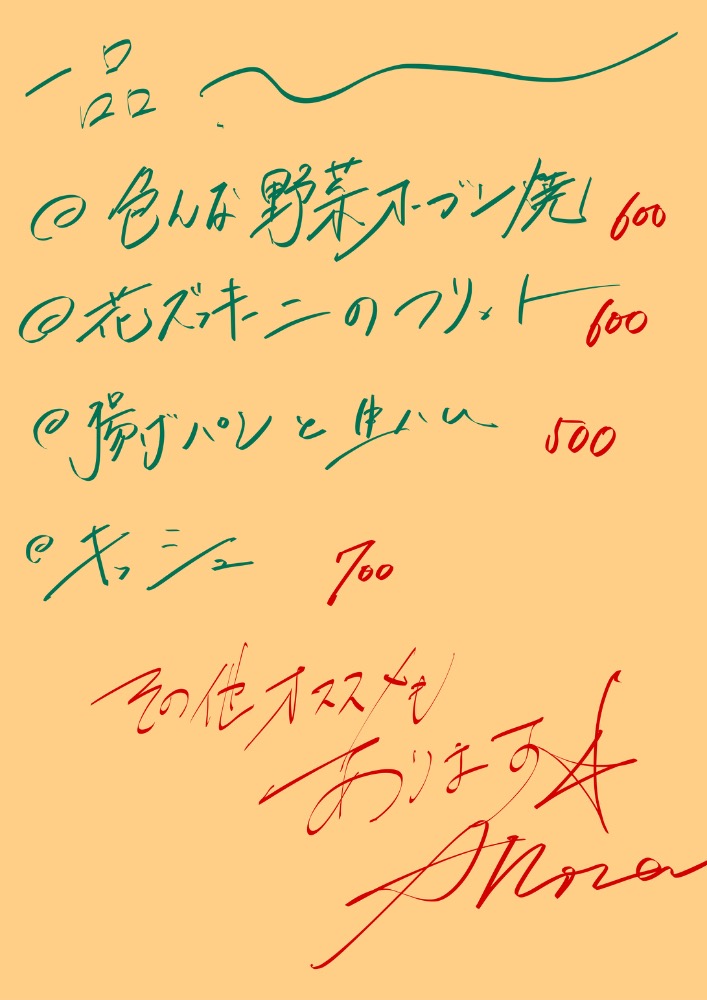 一品
@ 色んな野菜オーブン焼 600
@ 花ズッキーニのフリット 600
@ 揚げパンと生ハム 500
@ キッシュ 700
その他オススメも
あります☆